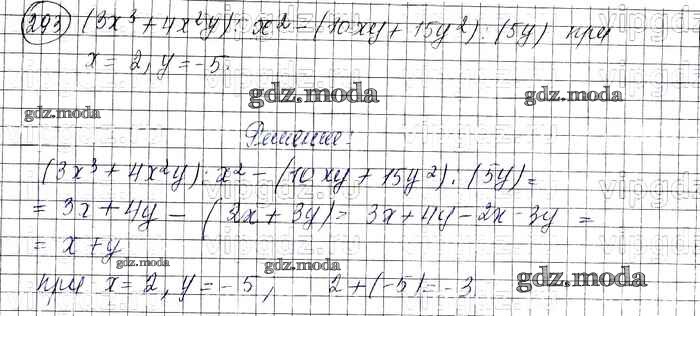 293 (3x³ + 4x²y) : x² - (10xy + 15y²) : (5y) при
x = 2, y = -5.
gdz.moda gdz.moda gdz.moda
Решение:
(3x³ + 4x²y) : x² - (10xy + 15y²) : (5y) =
= 3x + 4y - (2x + 3y) = 3x + 4y - 2x - 3y =
= x + y
gdz.moda gdz.moda gdz.moda
при x = 2, y = -5, 2 + (-5) = -3